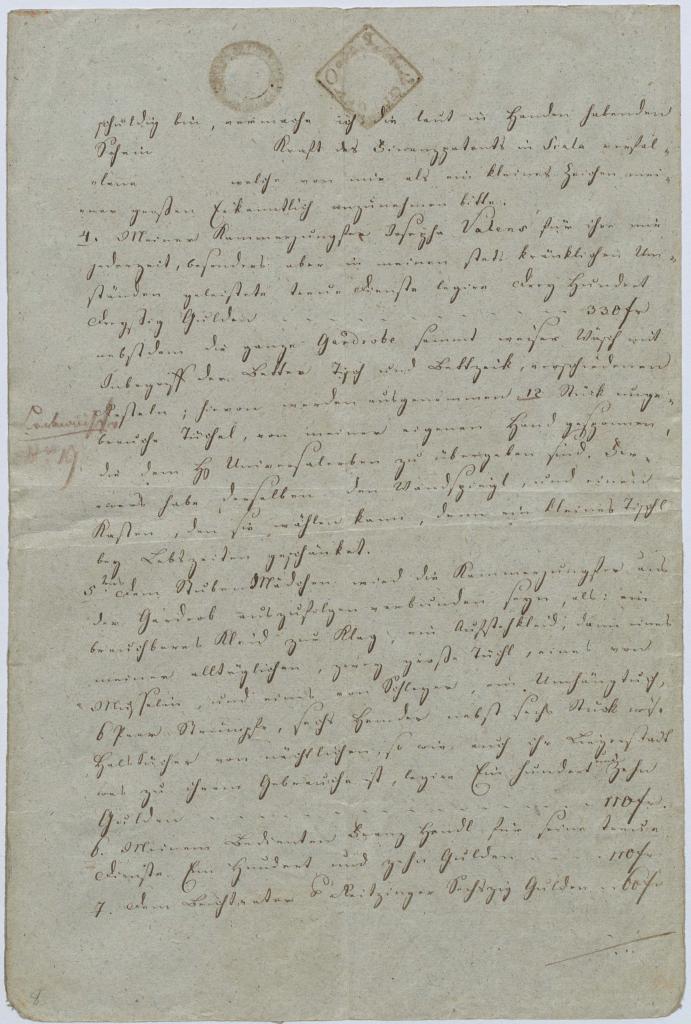 schuldig bin, vermache ich die laut in Handen habenden
Schein Kraft des Finanzpatents in Scala verfal-
lene welche von mir als ein kleines Zeichen mei-
ner großen Erkenntlich anzunehmen bitte.
4. Meiner Kammerjungfer Josepha für ihre mir
jederzeit, besonders aber in meinen stets kränklichen Um-
ständen geleistete treue Dienste legire Drey Hundert
Dreyßig Gulden 330 fr
nebstdem die ganze Garderobe sammt weiser Wäsch mit
Inbegriff der Better Tisch und Bettzeik, verschiedenen
hievon werden ausgenommen 12 Stück unge-
brauchte Tüchel, von meiner eigenen Hand gesponnen,
die dem H. Universalerben zu übergeben sind. Fer-
ners habe derselben den Wandspiegl, und einen
Kasten, den sie wählen kann, denn ein kleines Tischl
bey Lebszeiten geschänket.
5. Dem StubenMädchen wird die Kammerjungfer aus
der Garderob auszufolgen verbunden seyn, als: ein
brauchbares Kleid zur Klag, ein dann eines
meiner alltäglichen, zwey große Tüchl, eines von
Musselin, und eines von Schleyer, ein Umhängtuch,
6 Paar Strümpfe, sechs Hemder nebst sechs Stuck
HalsTücher von nächtlichen, so wie auch ihr Liegerstadt
was zu ihrem Gebrauche ist, legire Ein hundert und Zehn
Gulden 110 fr.
6. Meinem Bedienten Franz Handl für seine treue
Dienste Ein Hundert und zehn Gulden 110 fr.
7. Dem Beichtvater P. Reitzinger Sechszig Gulden 60 fr
8